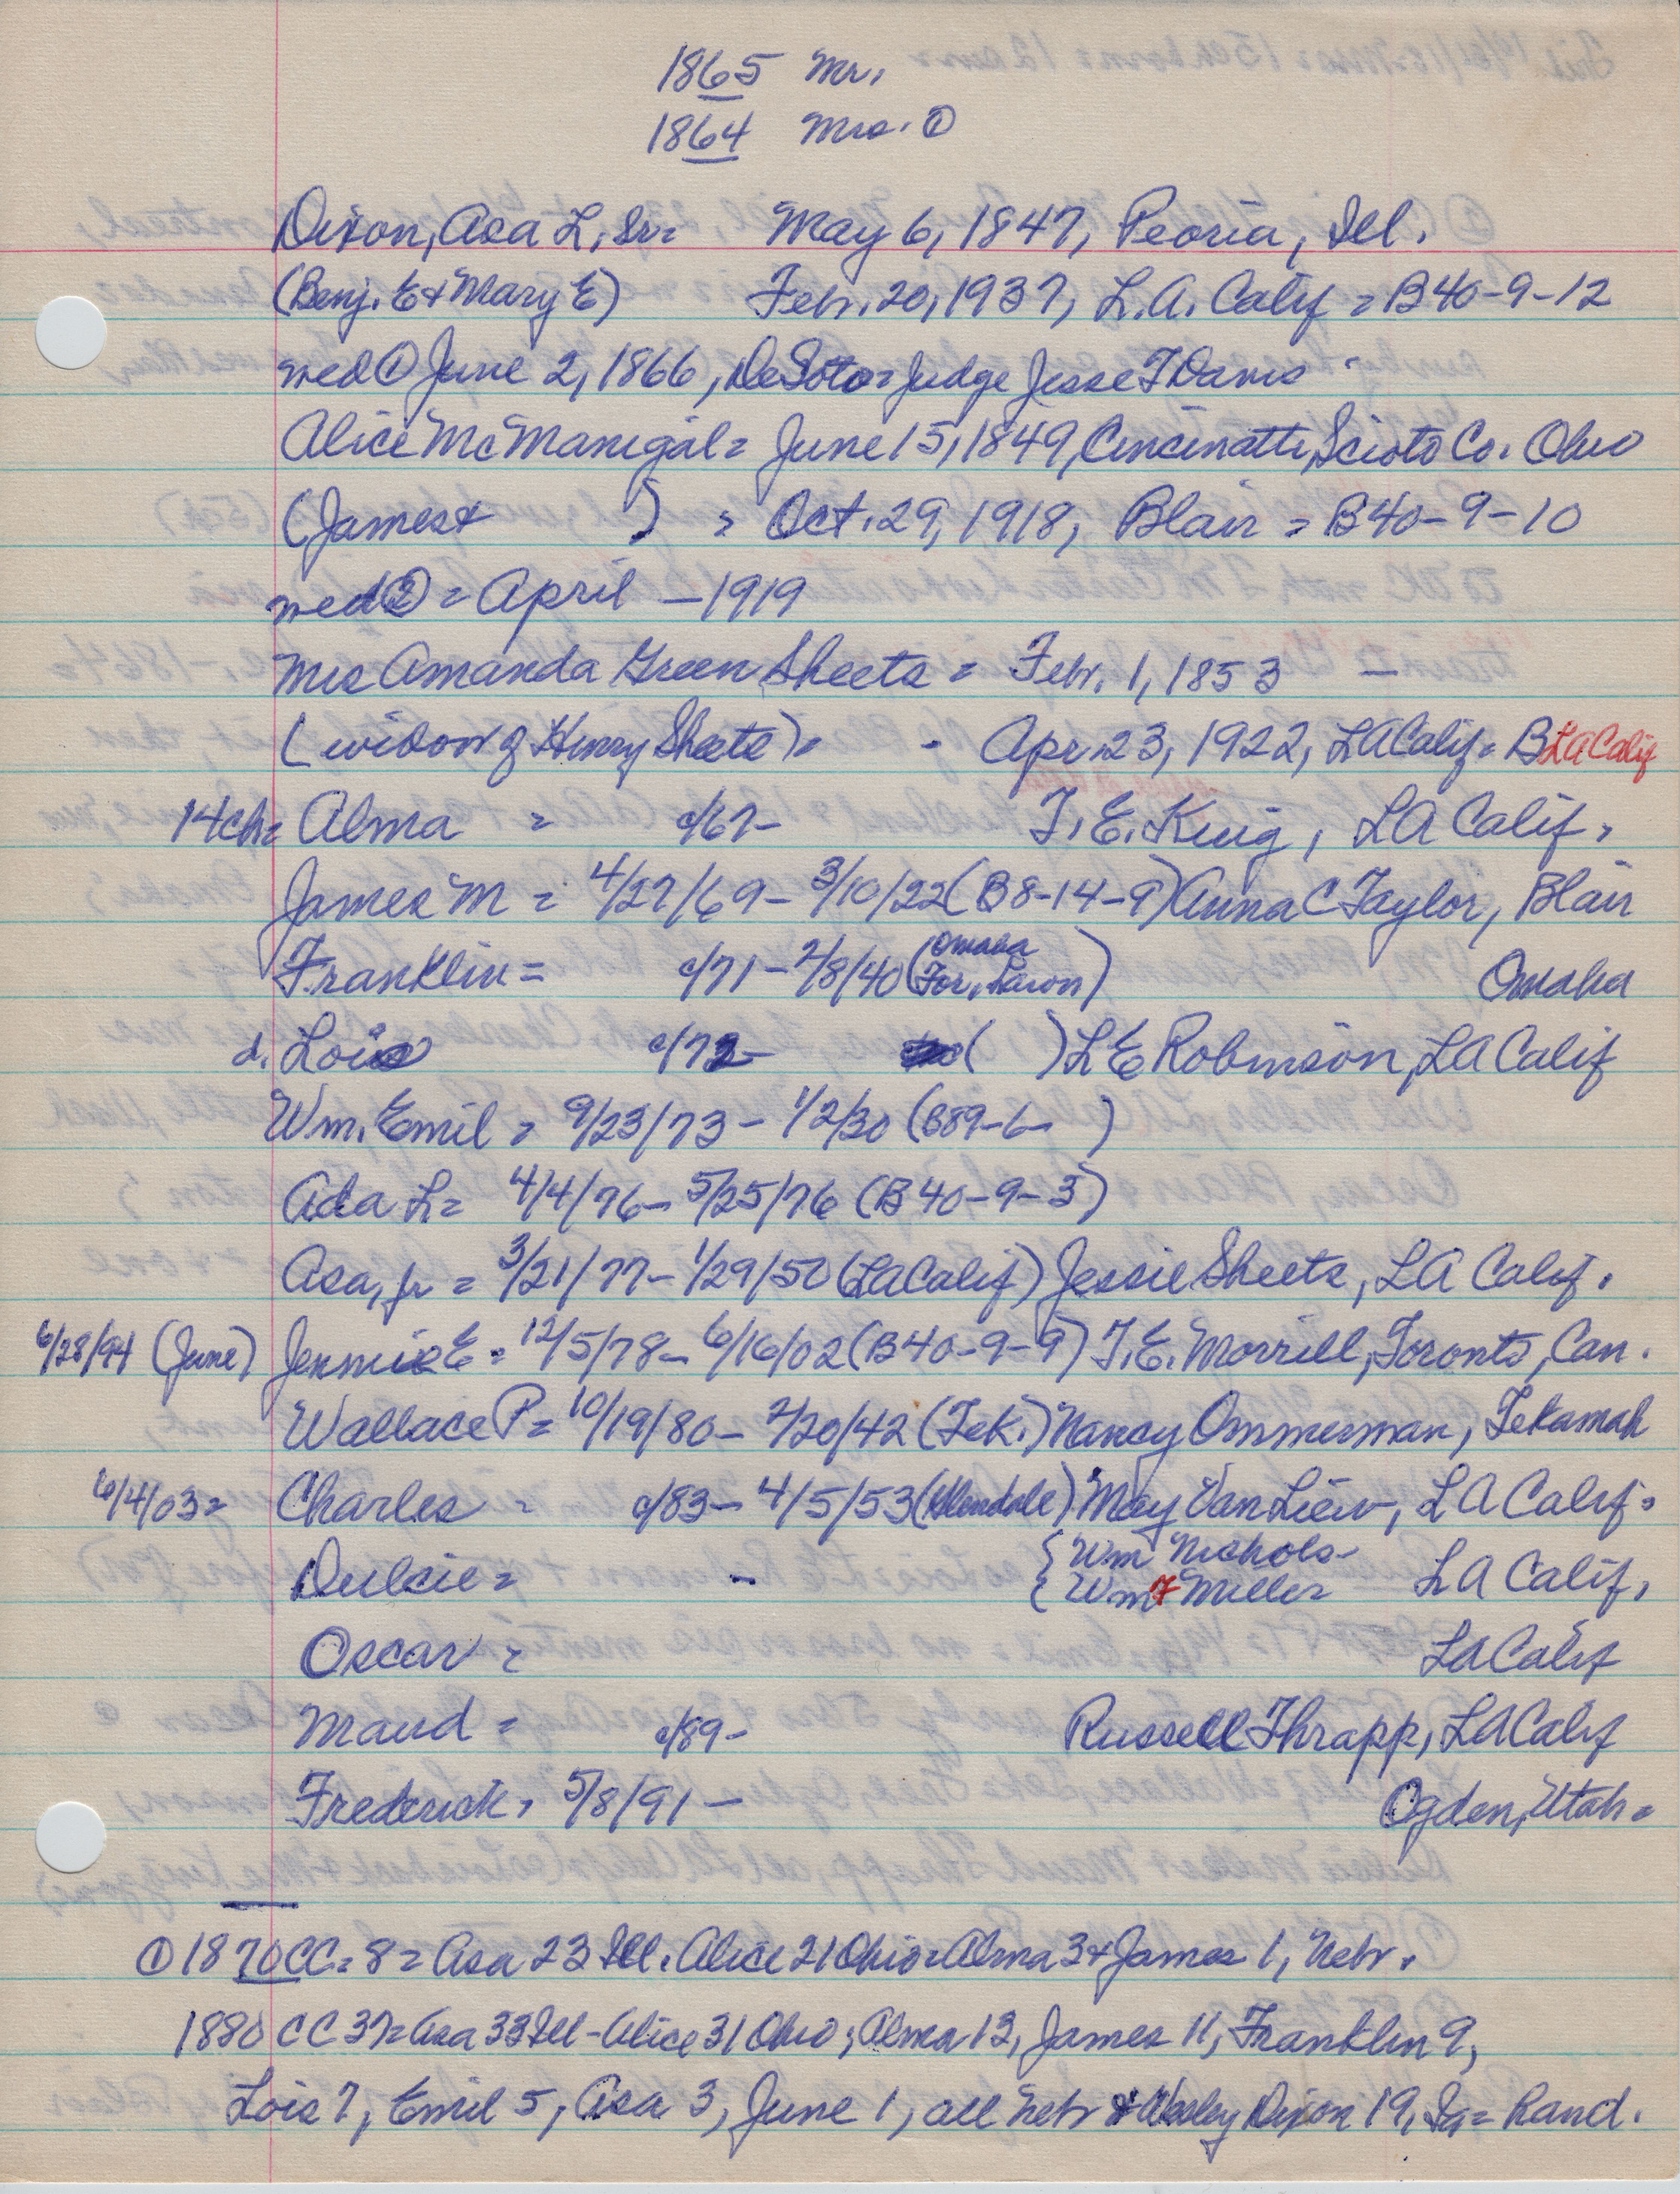 1865 Mr.
1864 Mrs. ①
Dixon, Asa L, Sr = May 6, 1847, Peoria, Ill.
(Benj. E + Mary E) Febr. 20, 1937, L.A. Calif = B40-9-12
med ① June 2, 1866, DeSoto = Judge Jesse T Davis
Alice McManigal = June 15, 1849, Cincinatti, Scioto Co. Ohio
(James + ) = Oct. 29, 1918, Blair = B40-9-10
med ② = April – 1919
Mrs Amanda Green Sheets = Febr. 1, 1853 –
(widow of Henry Sheets) = - Apr. 23, 1922, LA Calif = B LA Calif
14ch = Alma = c/67- T. E. King, LA Calif.
James M = 4/27/69 - 3/10/22 (B8-14-9) Anna C Taylor, Blair
Franklin = c/71 - 2/8/40 (Omaha For. Lawn) Omaha
d. Lois c/72- ( ) L E Robinson, LA Calif
Wm. Emil = 9/23/73 - 1/2/30 (B89-6- )
Ada L = 4/4/76 - 5/25/76 (B40-9-3)
Asa, Jr = 3/21/77 - 1/29/50 (LA Calif) Jessie Sheets, LA Calif.
6/28/94 (June) Jennie E = 12/5/78 - 6/16/02 (B40-9-9) T. E. Morrill, Toronto, Can.
Wallace P = 10/19/80 - 2/20/42 (Tek.) Nancy Ommerman, Tekamah
6/4/03 = Charles = c/83 - 4/5/53 (Glendale) May Van Liew, LA Calif.
Dulcie = - { Wm Nichols-
{ Wm F Miller LA Calif,
Oscar = LA Calif
Maud = c/89- Russell Thrapp, LA Calif
Frederick, 5/8/91 - Ogden, Utah =
① 1870 CC = 8 = Asa 23 Ill. Alice 21 Ohio = Alma 3 + James 1, Nebr.
1880 CC 37 = Asa 33 Ill - Alice 31 Ohio; Alma 13, James 11, Franklin 9,
Lois 7, Emil 5, Asa 3, June 1, all Nebr & Wesley Dixon 19, Ia = Rand.